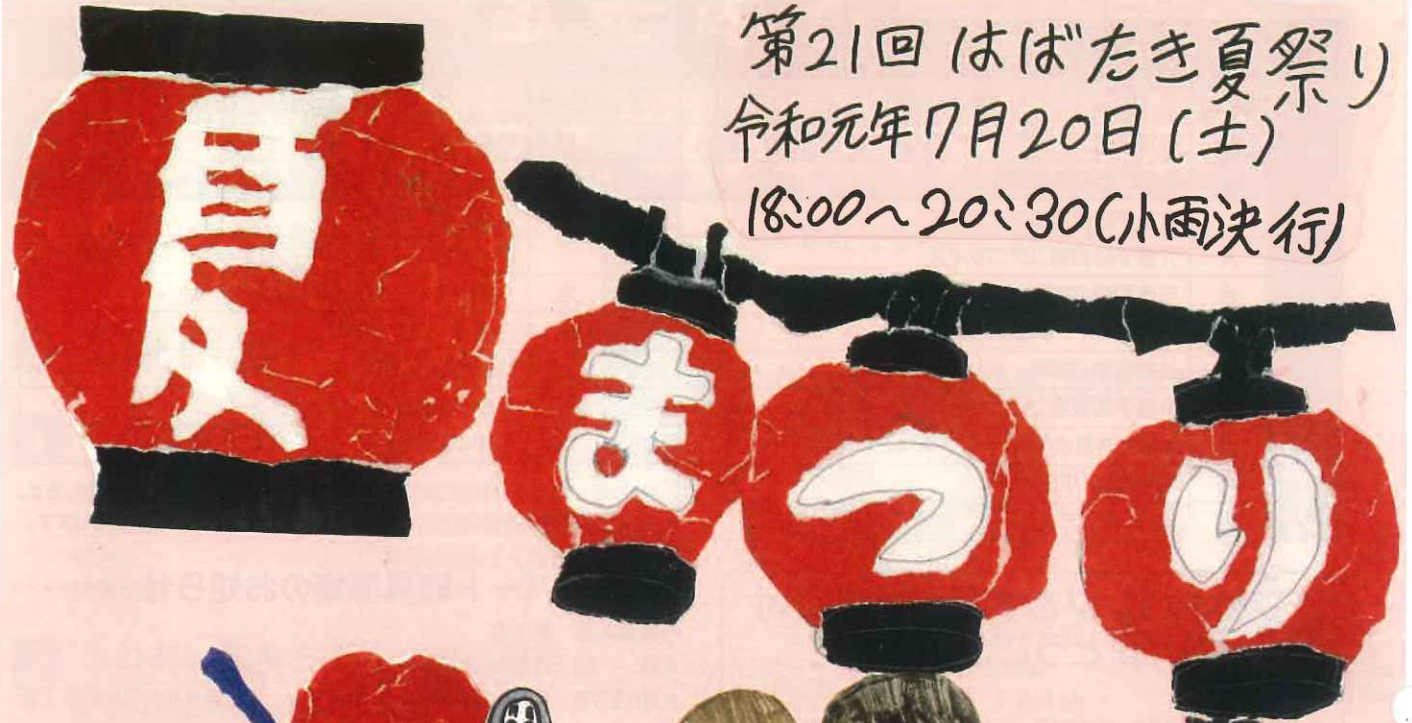 第21回 はばたき夏祭り
令和元年7月20日(土)
18:00~20:30(小雨決行)
夏
まつり